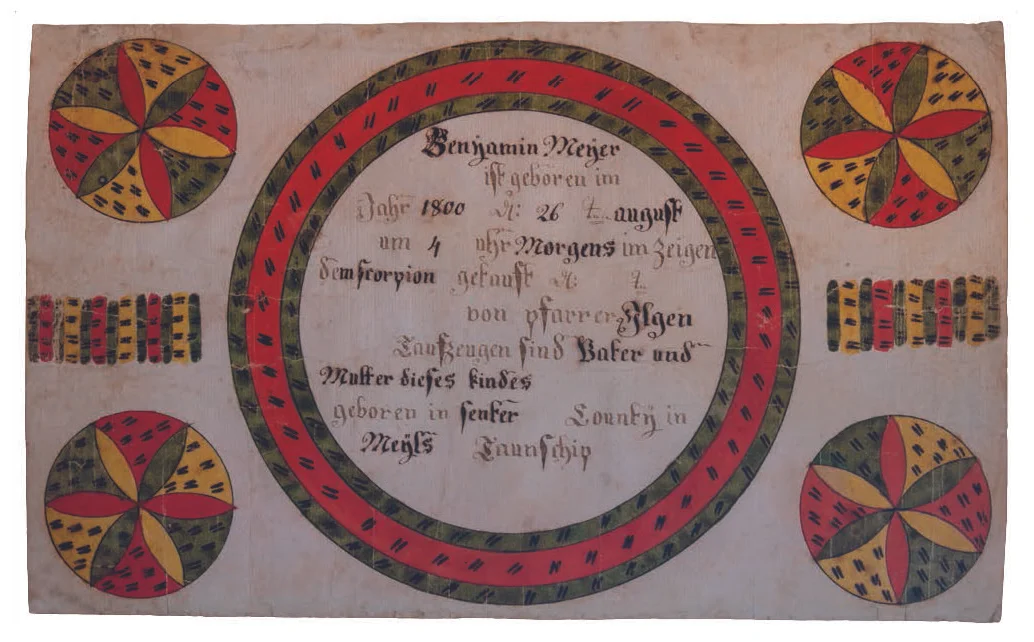 Benjamin Meÿer
ist geboren im
Jahr 1800 d: 26 t. august
um 4 uhr Morgens im zeigen
dem scorpion getauft d: t.
von pfarrer Ilgen
Taufzeugen sind Vater und
Mutter dieses kindes
geboren in senter Countÿ in
Meÿls Taunschip